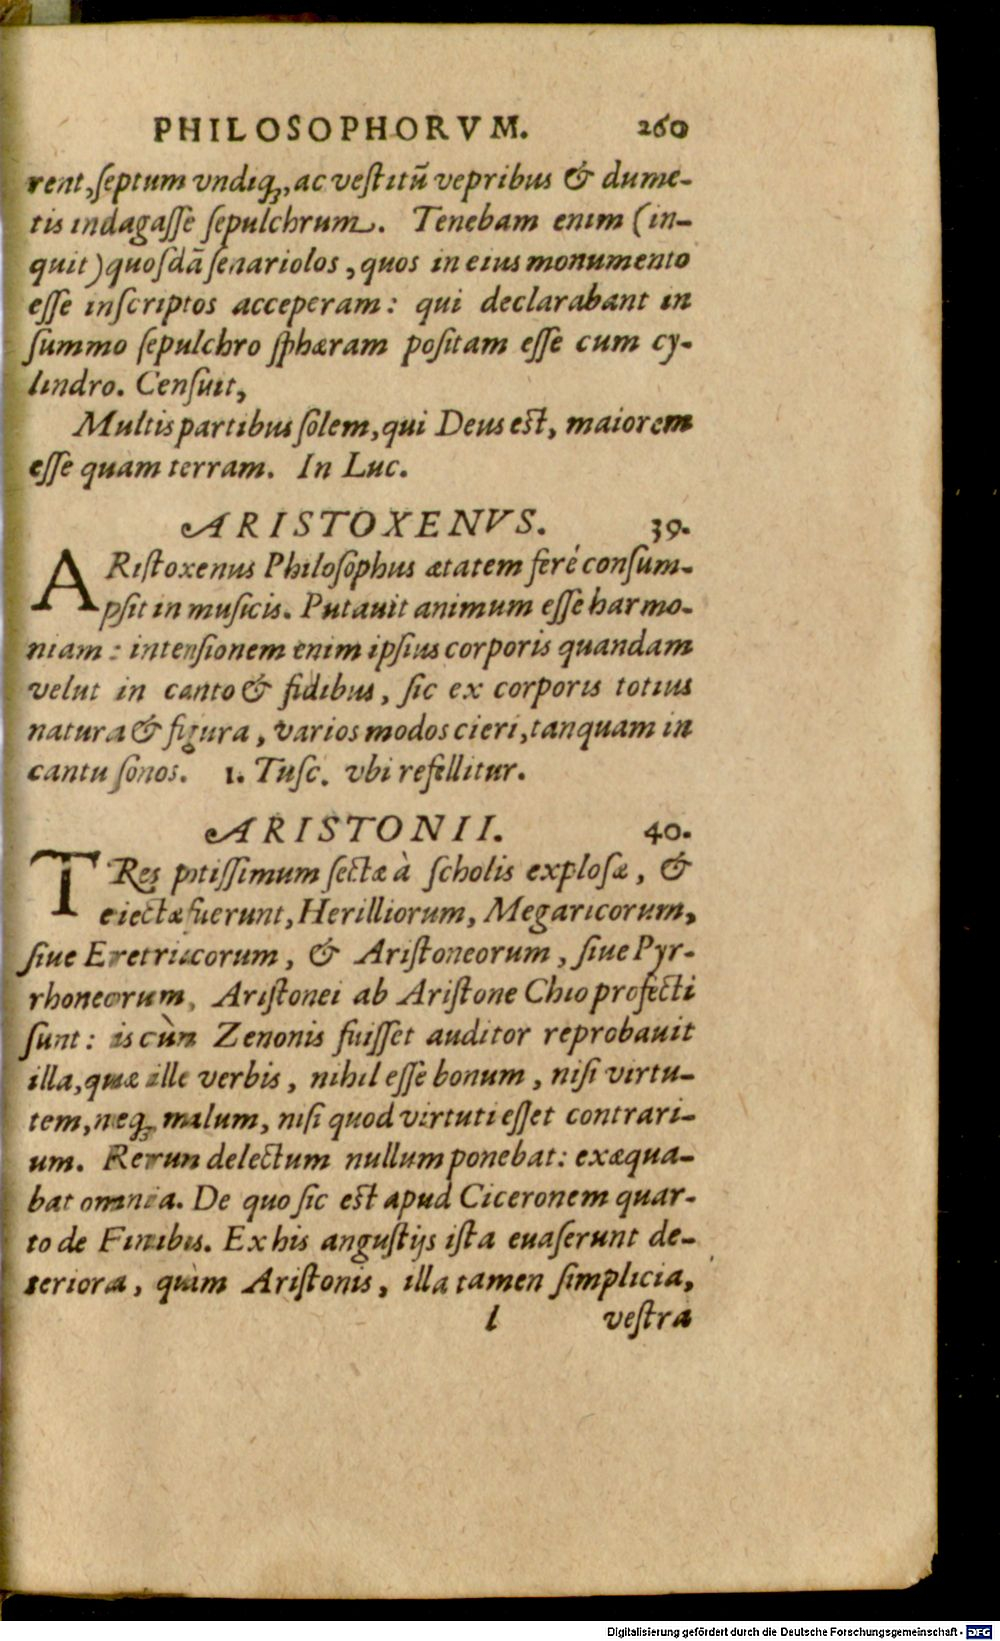 PHILOSOPHORVM. 260
rent, ſeptum vndiq́;, ac veſtitũ vepribus & dume-
tis indagaſſe ſepulchrum. Tenebam enim (in-
quit) quoſdã ſenariolos, quos in eius monumento
eſſe inſcriptos acceperam: qui declarabant in
ſummo ſepulchro ſphæram poſitam eſſe cum cy-
lindro. Cenſuit,
Multis partibus ſolem, qui Deus eſt, maiorem
eſſe quam terram. In Luc.
ARISTOXENVS. 39.
ARiſtoxenus Philoſophus ætatem ferè conſum-
pſit in muſicis. Putauit animum eſſe harmo-
niam: intenſionem enim ipſius corporis quandam
velut in canto & fidibus, ſic ex corporis totius
natura & figura, varios modos cieri, tanquam in
cantu ſonos. 1. Tuſc. vbi refellitur.
ARISTONII. 40.
TRes potiſſimum ſectæ à ſcholis exploſæ, &
eiectæ fuerunt, Herilliorum, Megaricorum,
ſiue Eretricorum, & Ariſtoneorum, ſiue Pyr-
rhoneorum, Ariſtonei ab Ariſtone Chio profecti
ſunt: is cùm Zenonis fuiſſet auditor reprobauit
illa, quæ ille verbis, nihil eſſe bonum, niſi virtu-
tem, neq; malum, niſi quod virtuti eſſet contrari-
um. Rerum delectum nullum ponebat: exæqua-
bat omnia. De quo ſic eſt apud Ciceronem quar-
to de Finibus. Ex his anguſtijs iſta euaſerunt de-
teriora, quàm Ariſtonis, illa tamen ſimplicia,
l veſtra
Digitalisierung gefördert durch die Deutsche Forschungsgemeinschaft - DFG